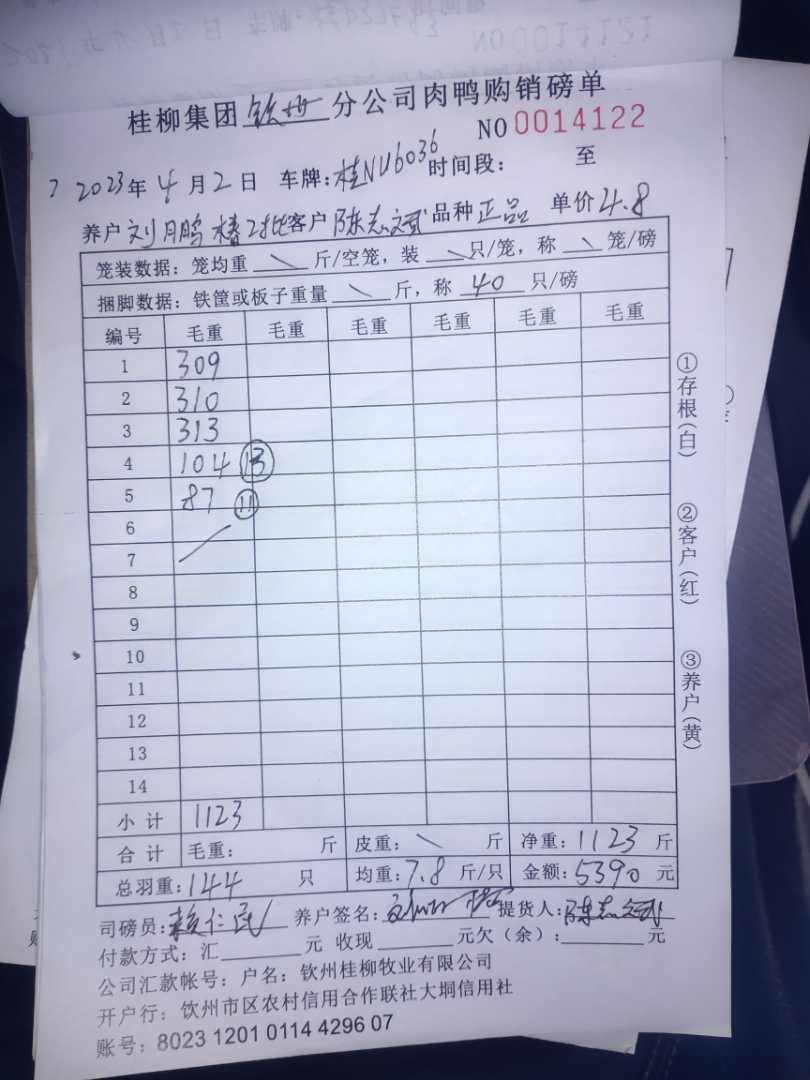 桂柳集团 钦州 分公司肉鸭购销磅单
NO 0014122
2023年 4月 2日 车牌:桂NU6036 时间段: 至
养户 刘月鹏 椿2批 客户 陈志斌 品种 正品 单价 4.8
笼装数据: 笼均重 \ 斤/空笼, 装 \ 只/笼, 称 \ 笼/磅
捆脚数据: 铁筐或板子重量 \ 斤, 称 40 只/磅
编号 毛重 毛重 毛重 毛重 毛重 毛重
1 309
2 310
3 313
4 104 ⑬
5 87 ⑪
6
7
8
9
10
11
12
13
14
小计 1123
合计 毛重: 斤 皮重: \ 斤 净重: 1123 斤
总羽重: 144 只 均重: 7.8 斤/只 金额: 5390 元
司磅员: 赖仁民 养户签名: 提货人: 陈志斌
付款方式: 汇 元 收现 元欠(余): 元
公司汇款帐号: 户名: 钦州桂柳牧业有限公司
开户行: 钦州市区农村信用合作联社大垌信用社
账号: 8023 1201 0114 4296 07
①存根(白)
②客户(红)
③养户(黄)